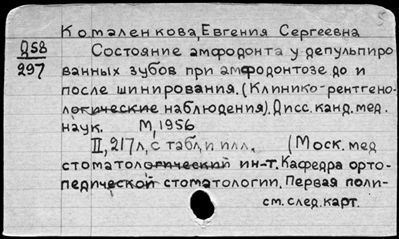 Комаленкова, Евгения Сергеевна
Д58
297
Состояние амфодонта у депульпиро
ванных зубов при амфодонтозе до и
после шинирования. (Клинико-рентгено-
логические наблюдения). Дисс. канд. мед.
наук. М, 1956
II, 217 л, с табл. и илл. (Моск. мед
стоматологический ин-т. Кафедра орто-
педической стоматологии. Первая поли-
см. след. карт.